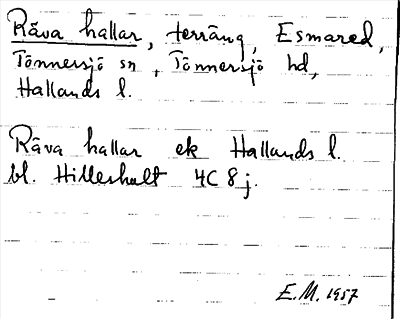 Råva hallar, terräng, Esmared,
Tönnersjö sn, Tönnersjö hd,
Hallands l.
Råva hallar ek Hallands l.
bl. Hilleshult 4C 8j.
E.M. 1957